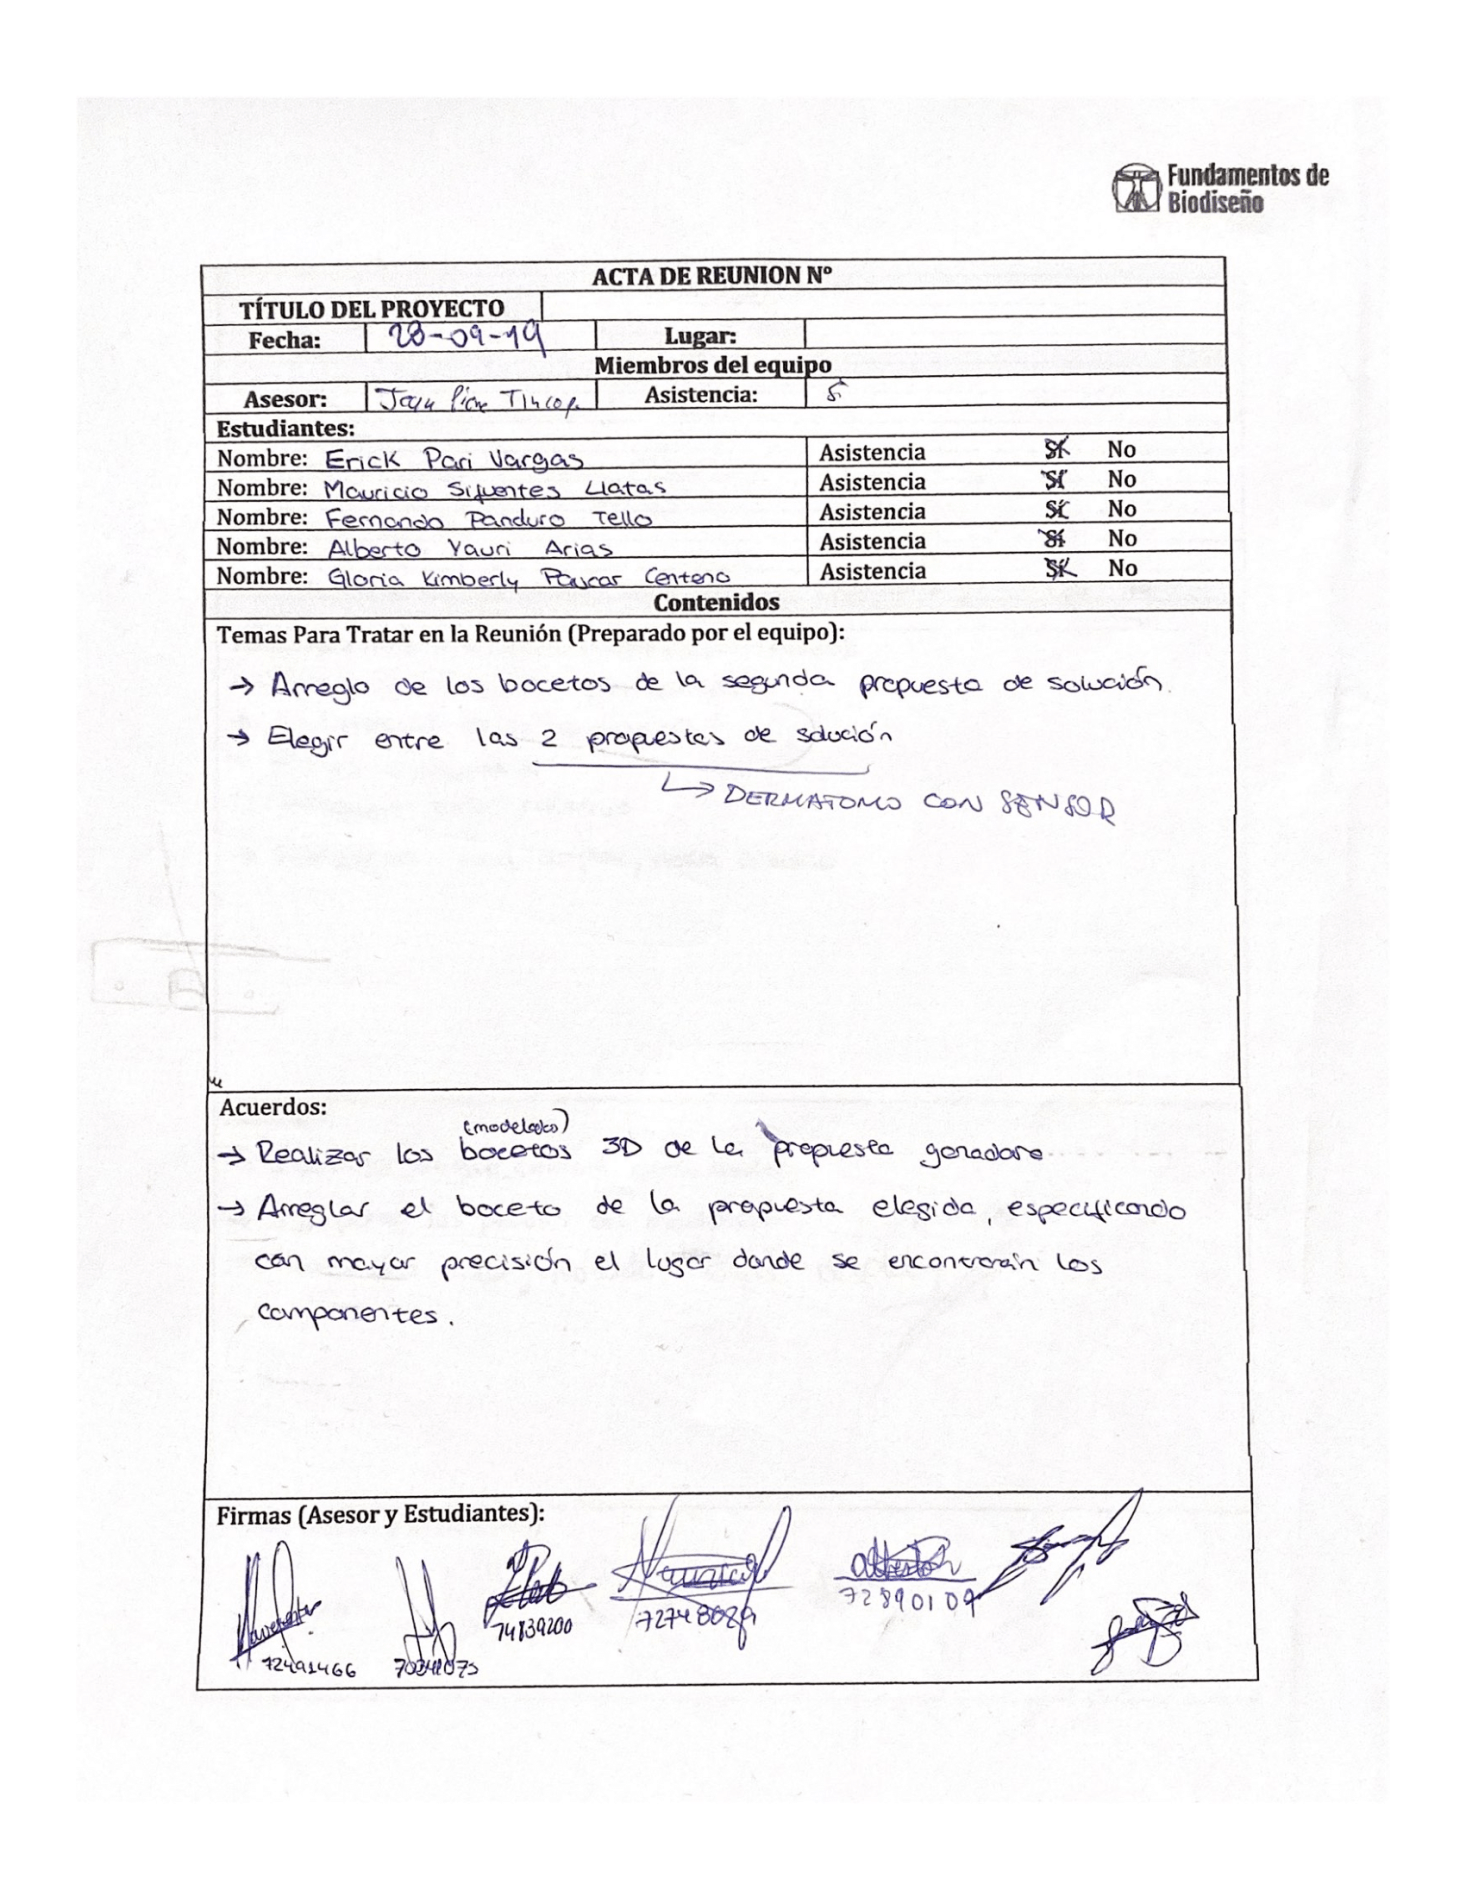 Fundamentos de
Biodiseño
ACTA DE REUNION Nº
TÍTULO DEL PROYECTO
Fecha: 28-09-19 Lugar:
Miembros del equipo
Asesor: Tincop Asistencia: Si
Estudiantes:
Nombre: Erick Pari Vargas Asistencia Sí No
Nombre: Mauricio Sifuentes Llatas Asistencia Sí No
Nombre: Fernando Panduro Tello Asistencia Sí No
Nombre: Alberto Yauri Arias Asistencia Sí No
Nombre: Gloria Kimberly Paucar Centeno Asistencia Sí No
Contenidos
Temas Para Tratar en la Reunión (Preparado por el equipo):
→ Arreglo de los bocetos de la segunda propuesta de solución.
→ Elegir entre las 2 propuestas de solución
↳ DERMATOMO CON SENSOR
Acuerdos:
(modelado)
→ Realizar los bocetos 3D de la propuesta ganadora
→ Arreglar el boceto de la propuesta elegida, especificando
con mayor precisión el lugar donde se encontrarán los
componentes.
Firmas (Asesor y Estudiantes):
72491466 74839200 72890109